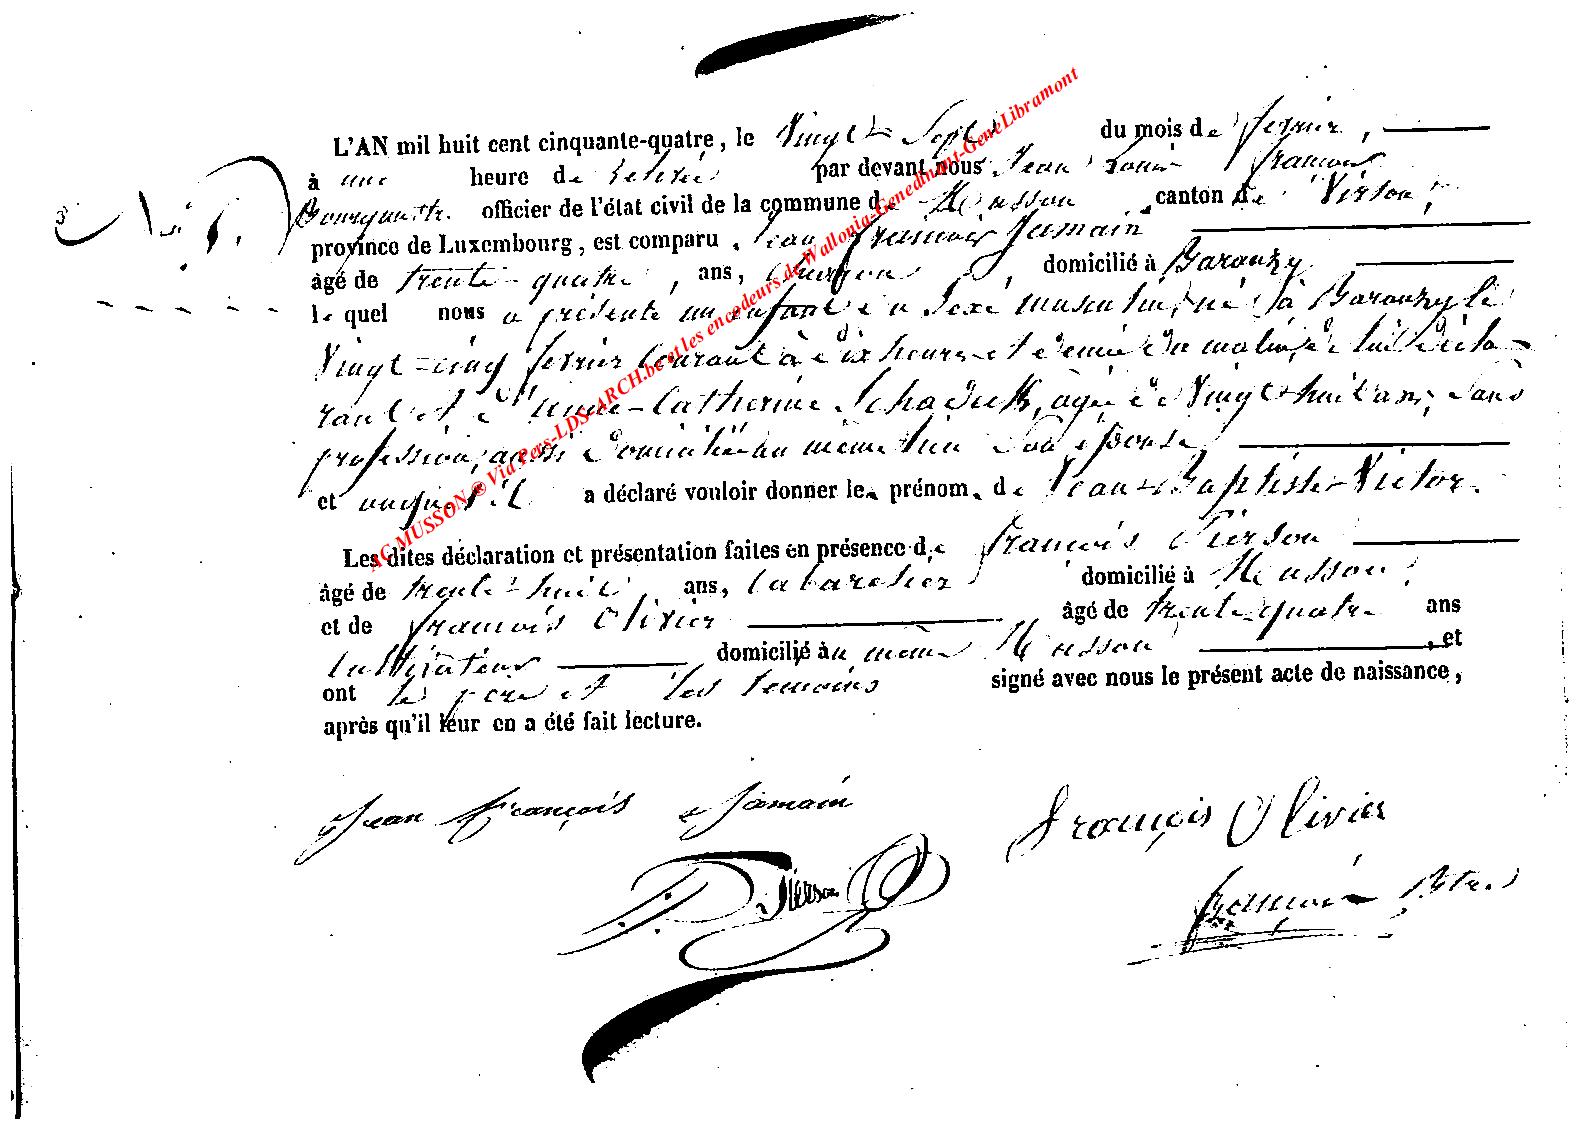 L'AN mil huit cent cinquante-quatre, le Vingt-Sept du mois de février,
à une heure de relevée par devant nous Jean Louis François
officier de l'état civil de la commune de Musson canton de Virton,
province de Luxembourg, est comparu Jean François Jamain
âgé de trente-quatre, ans, domicilié à Baranzy
le quel nous a présenté un enfant du Sexe masculin, né à Baranzy le
Vingt-cinq février Courant à dix heures et demie du matin, de lui décla-
rant et d'Anne-Catherine Schadeck, agée de Vingt-huit ans, Sans
profession, aussi domiciliée au même lieu Son épouse,
et auquel il a déclaré vouloir donner les prénoms de Jean-Baptiste-Victor.
Les dites déclaration et présentation faites en présence de François Pierson
âgé de trente-huit ans, Cabaretier domicilié à Musson,
et de François Olivier âgé de trente-quatre ans
Cultivateur domicilié au même Musson, et
ont le père et les témoins signé avec nous le présent acte de naissance,
après qu'il leur en a été fait lecture.
Jean François Jamain
François Olivier
Pierson
François
AC MUSSON ® Via Pers-LDS-ARCH.be et les encodeurs de Wallonia-Genedinant-GeneLibramont